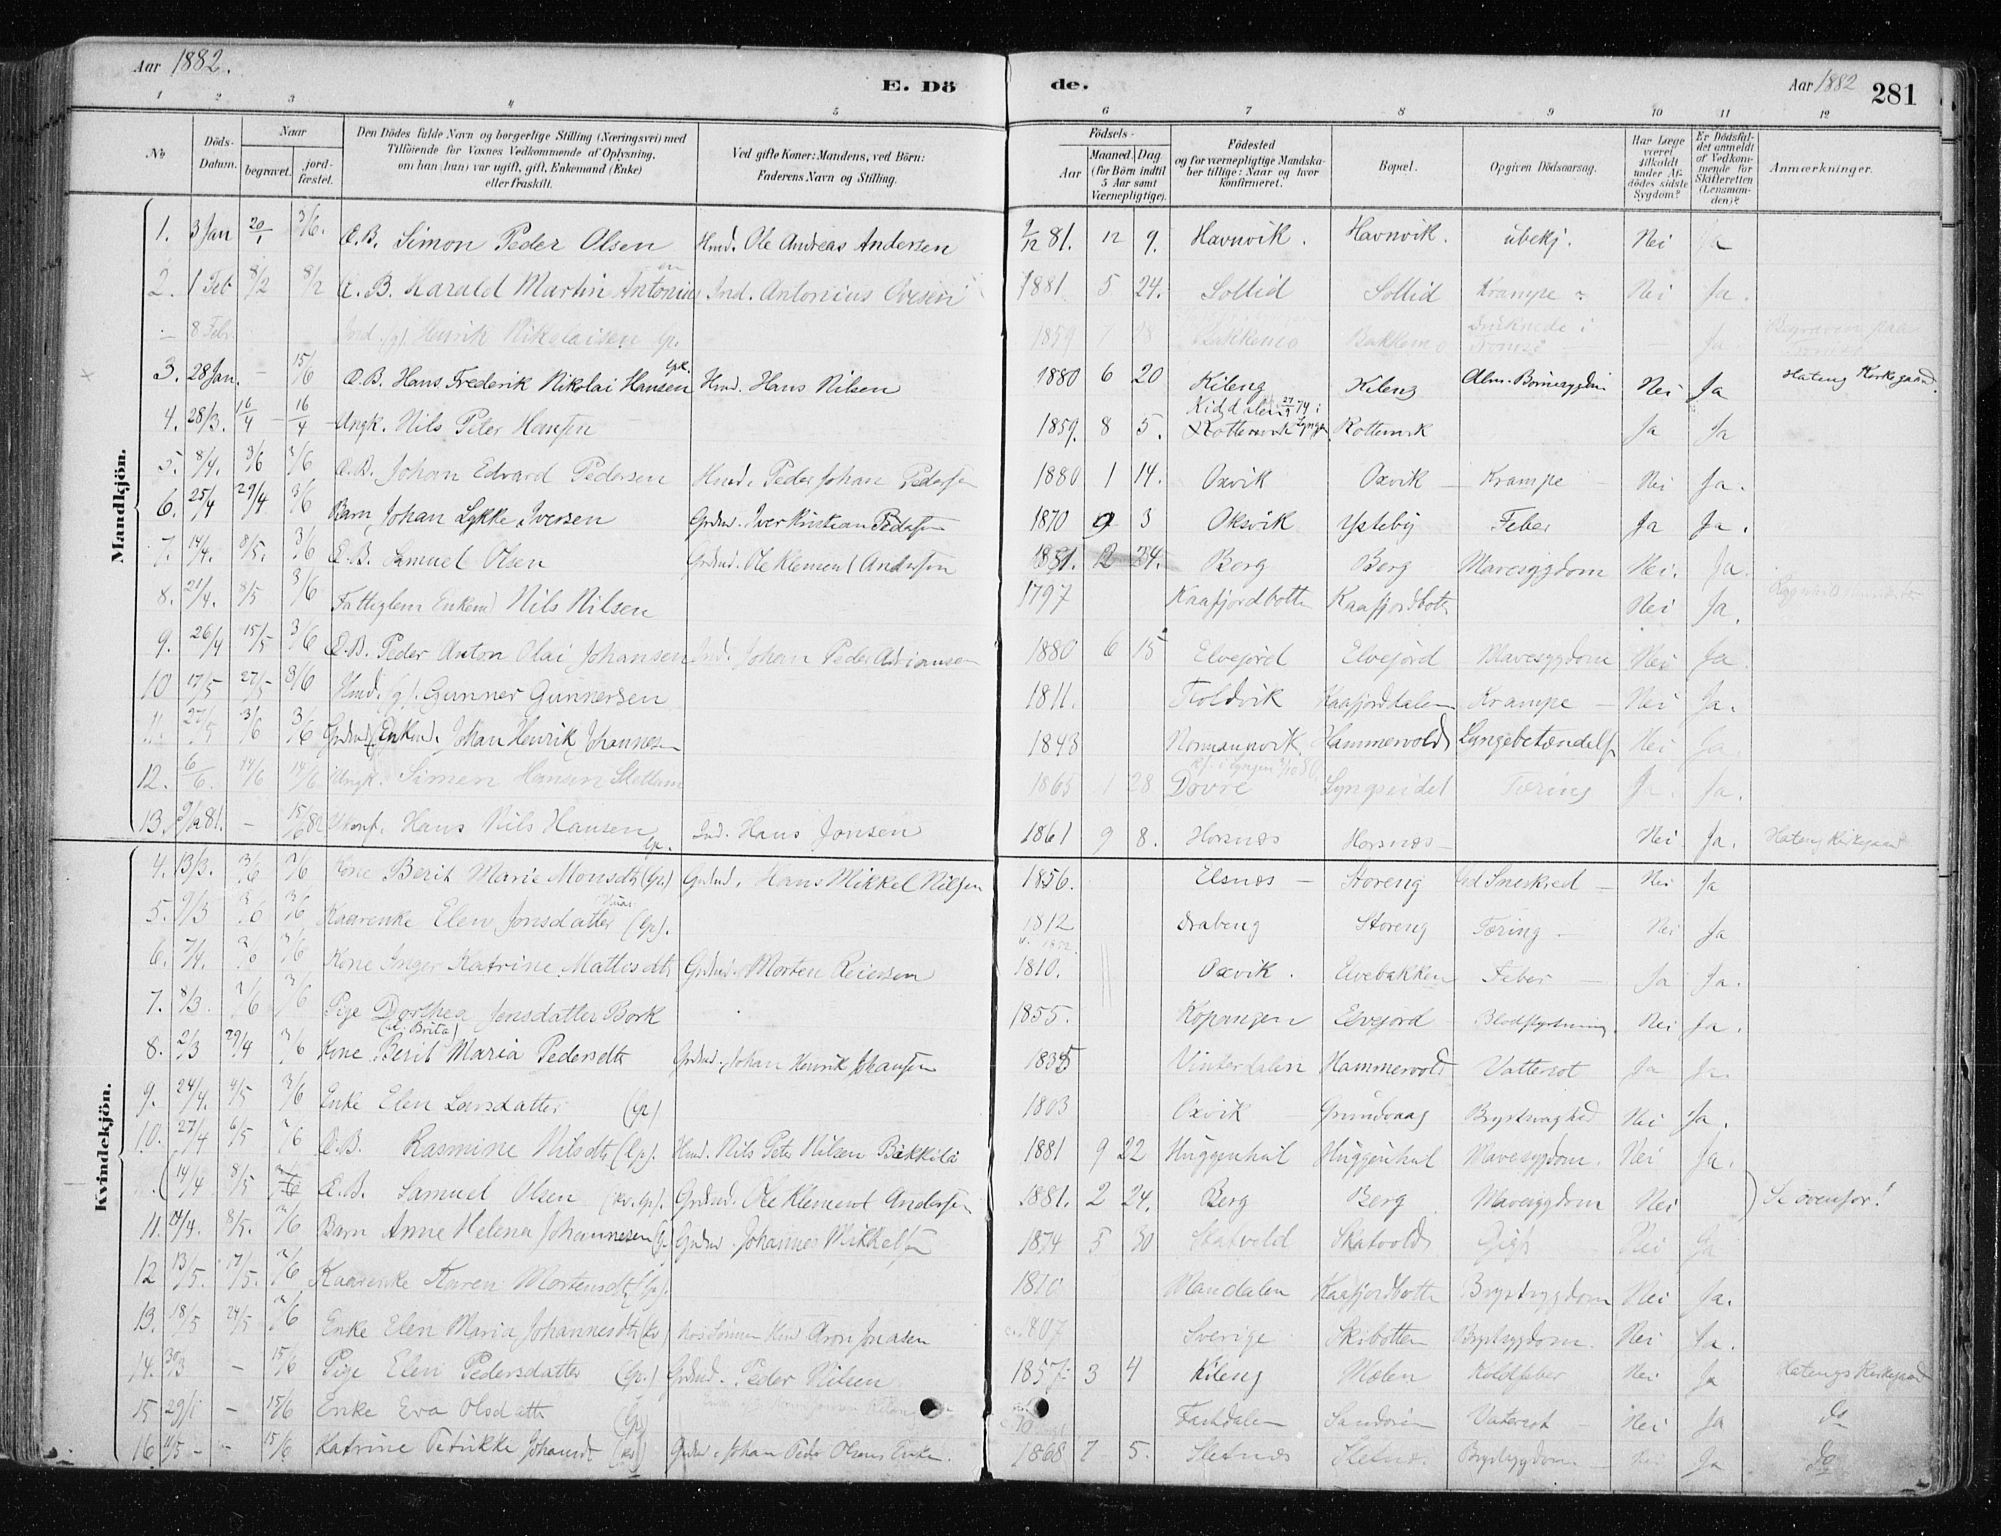 Aar 1882.
E. Döde.
Aar 1882 281
1 2 3 4 5 6 7 8 9 10 11 12
No
Döds-Datum.
Naar
begravet.
jord-fæstet.
Den Dödes fulde Navn og borgerlige Stilling (Næringsvei) med
Tilföiende for Voxnes Vedkommende af Oplysning,
om han (hun) var ugift, gift, Enkemand (Enke)
eller fraskilt.
Ved gifte Koner: Mandens, ved Börn:
Faderens Navn og Stilling.
Födsels-
Aar
Maaned. Dag.
(for Börn indtil
5 Aar samt
Værnepligtige).
Födested
og for værnepligtige Mandska-
ber tillige: Naar og hvor
konfirmeret.
Bopæl.
Opgiven Dödsaarsag.
Har Læge
været
tilkaldt
under Af-
dödes sidste
Sygdom?
Er Dödsfal-
det anmeldt
af Vedkom-
mende for
Skifteretten
(Lensman-
den)?
Anmærkninger.
Mandkjön.
1. 3 Jan 20/1 3/6. Æ.B. Simon Peder Olsen Hmd. Ole Andreas Andersen 9/12 81. 12 9. Havnvik. Havnvik. ubekj. Nei Ja
2. 1 Feb 8/2 8/2 Æ.B. Harald Martin Ind. Antonius 1881 5 24. Sollid Sollid Krampe Nei Ja.
– 8 Febr. Ind. (g). Henrik Nikolaisen Lp. 1859 Bakkemo Bakkemo Druknede i Tromsø Ja Begraven paa
3. 28 Jan. – 15/6 Æ.B. Hans Frederik Nikolai Hansen Hmd. Hans Nilsen 1880 6 20 Kileng Kileng Alm. Børnesygdm Nei Ja Hateng Kirkegaard.
4. 28/3. 16/4 – 16/4 Ungk. Nils Peter Hansen 1859. 8 5. Kiddalen 27/9 74 i Lyngen Rottenvik Rottenvik Ja Ja
5. 8/4. 3/6 3/6 Æ.B. Johan Edvard Pedersen Hmd. Peder Johan Pedersen 1880 1 14. Oxvik Oxvik Krampe Nei Ja.
6. 25/4 29/4 3/6 Barn Johan Lykke Iversen Grdmd. Iver Kristian Pedersen 1870 9 3 Oksvik Ysteby Feber Ja Ja.
7. 14/4. 8/5. 3/6 Æ.B. Samuel Olsen Grdmd. Ole Klement Andersen 1881. 2 24. Berg Berg Mavesygdom Nei. Ja.
8. 21/4. 8/5 3/6 Fattiglem Enkemd Nils Nilsen 1797 Kaafjordbotn Kaafjordbotn Nei Ja.
9. 26/4 15/5 3/6 Æ.B. Peder Anton Olai Johansen Ind. Johan Peder Adriansen 1880 6 15 Elvejord Elvejord Mavesygdom Nei Ja.
10 17/5 27/5 3/6 Hmd. (g). Gunner Gunnersen 1811. Toldvik Kaafjorddalen Krampe – Nei Ja.
11. 27/5 3/6 3/6 Grdmd (Enkemd. Johan Henrik Johannesen 1843 Normannvik Hammervold Lungebetændelse Nei Ja.
12. 6/6. 14/6 14/6 Ungk. Simen Hansen 1865 1 28 Dovre Lyngseidet Tæring Ja. Ja.
13. 9/12 81. – 15/6 82 Ukonf. Hans Nils Hansen Lp. Ind. Hans Jonsen 1861 9 8. Horsnæs Horsnæs – Nei Ja. Hateng Kirkegaard
Kvindekjön.
4. 13/3. 3/6 3/6 Kone Berit Marie Monsdtr (Lp.) Grdmd. Hans Mikkel Nilsen 1856. Elsnæs – Storeng ved Sneskred – Nei Ja
5. 9/3 3/6 3/6 Kaarenke Elen Jonsdatter (Lp). 1812 Drabeng Storeng Tæring – Nei Ja
6. 7/4. 3/6 3/6 Kone Inger Katrine Mattisdtr Grdmd. Morten Reiersen 1810. Oxvik. Elvebakken Feber – Ja Ja.
7. 8/3 3/6 3/6 Pige Dorthea Jensdatter Bork 1855. Kopangen Elvejord Blodstyrtning. Nei Ja.
8. 2/3 29/4 3/6 Kone Berit (el. Brita) Maria Pedersdtr Grdmd. Johan Henrik Johansen 1835 Vinterdalen Hammervold Vattersot Ja Ja.
9. 24/4. 4/5 3/6 Enke Elen Larsdatter (Lp) 1803 Oxvik – Grundvaag Brystsvaghed Nei Ja.
10. 27/4 6/5 3/6 Æ.B. Rasmine Nilsdtr (Lp). Hmd. Nils Peter Nilsen Bakkila 1881 9 22 Huggenhul Huggenhul Mavesygdom. Nei Ja.
(14/4 8/5 3/6 Æ.B. Samuel Olsen (kv. Lp). Grdmd. Ole Klement Andersen 1881. 2 24. Berg Berg Mavesygdom Nei ) Se ovenfor!
11. 24/4. 8/5. 3/6 Barn Anne Helena Johannesen Grdmd Johannes Mikkelsen 1874 5 30 Skatvold Skatvold Gigt Nei Ja
12 13/5. 17/5. 3/6 Kaarenke Karen Mortensdtr (Lp). 1810 Mandalen Kaafjordbotn Brystsygdom Nei Ja.
13. 18/5 24/5 3/6 Enke Elen Maria Johannesdtr hos Sønnen Hmd Aron Jonasen 1807 Sverige Skibotten Brystsygdom. Nei Ja.
14. 30/3 – 15/6 Pige Elen Pedersdatter (Lp.) Grdmd. Peder Nilsen 1857. 3 4 Kileng Mælen Koldfeber Nei Ja Hatengs Kirkegaard
15 29/1 – 15/6 Enke Eva Olsdatter (Lp) Vatersot – Nei Ja do
16 11/5 – – 15/6 Katrine Petrikke Johansdtr Grdmd. Johan Peder Olsens Enke. 1868 7 5. Sletnæs Sletnæs Brystsygdom Nei Ja do